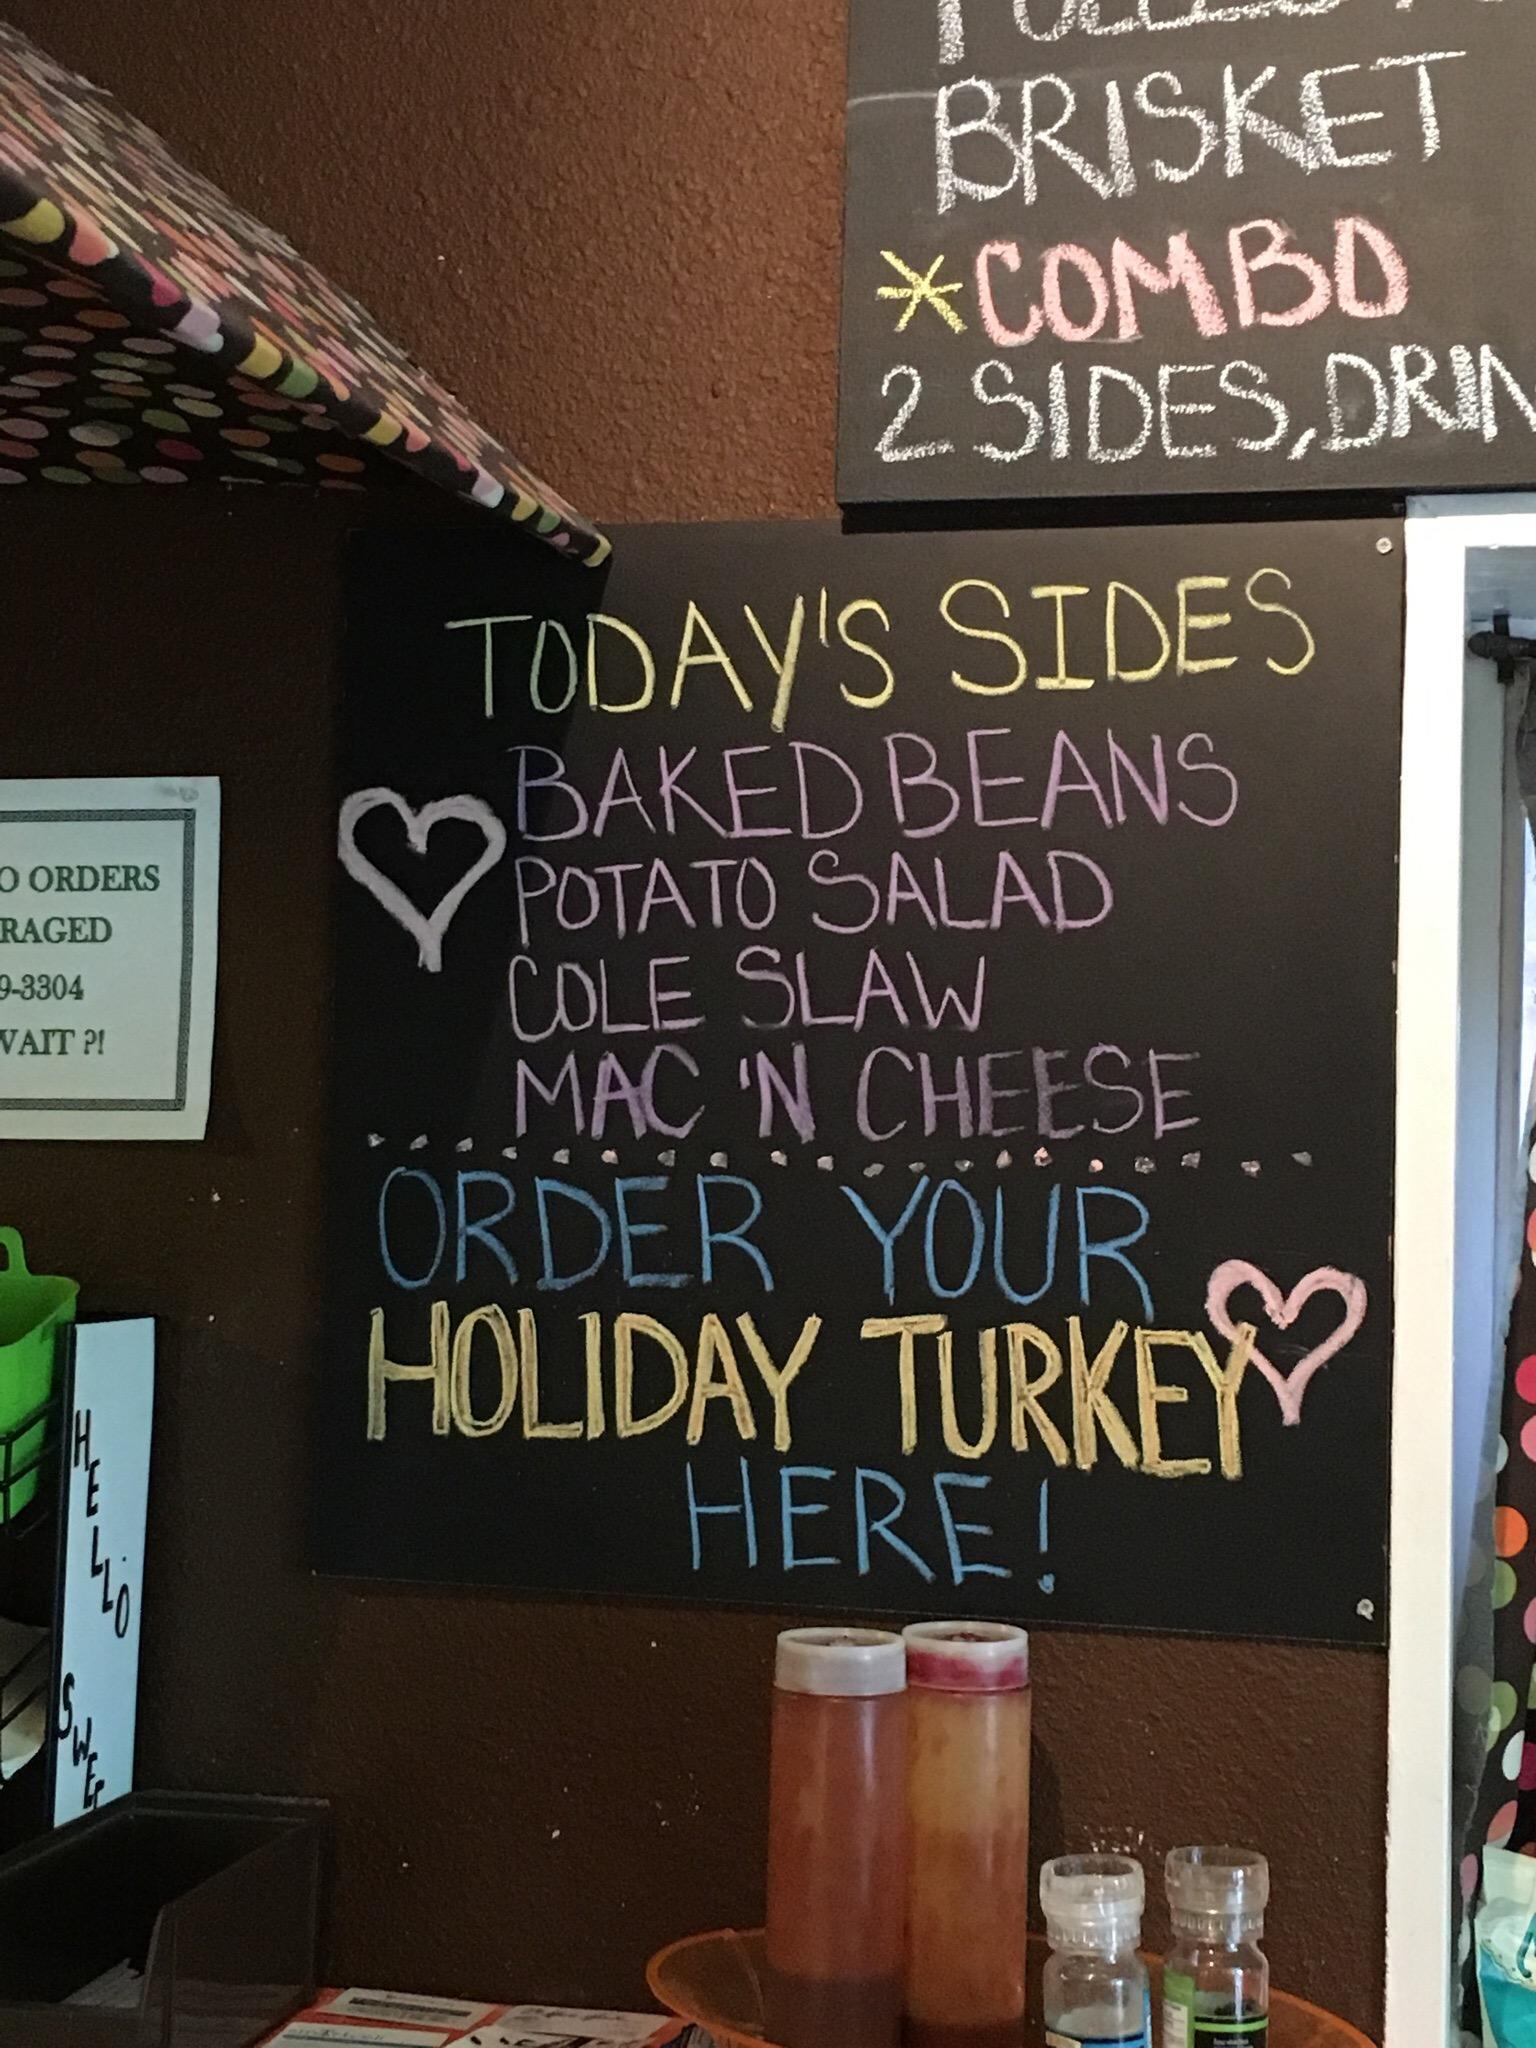 BRISKET
*COMBO
2 SIDES, DRIN
TODAY'S SIDES
BAKED BEANS
POTATO SALAD
COLE SLAW
MAC 'N CHEESE
ORDER YOUR
HOLIDAY TURKEY
HERE!
O ORDERS
RAGED
9-3304
WAIT ?!
HELLO
SWE